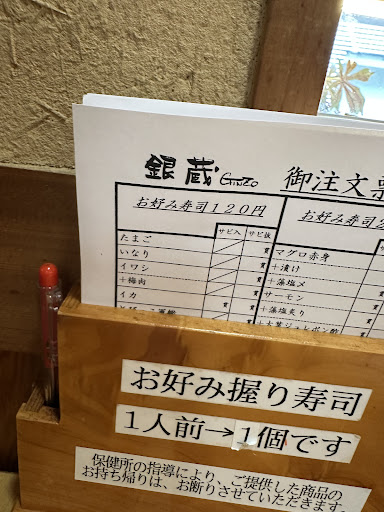 銀蔵 GINZO 御注文票
お好み寿司120円 サビ入 サビ抜
お好み寿司2
たまご 貫
いなり 貫
イワシ 貫
+梅肉 貫
イカ 貫
マグロ赤身
+漬け
+藻塩〆
サーモン
+藻塩炙り
+大葉ジュレポン酢
お好み握り寿司
1人前→1個です
保健所の指導により、ご提供した商品の
お持ち帰りは、お断りさせていただきます。